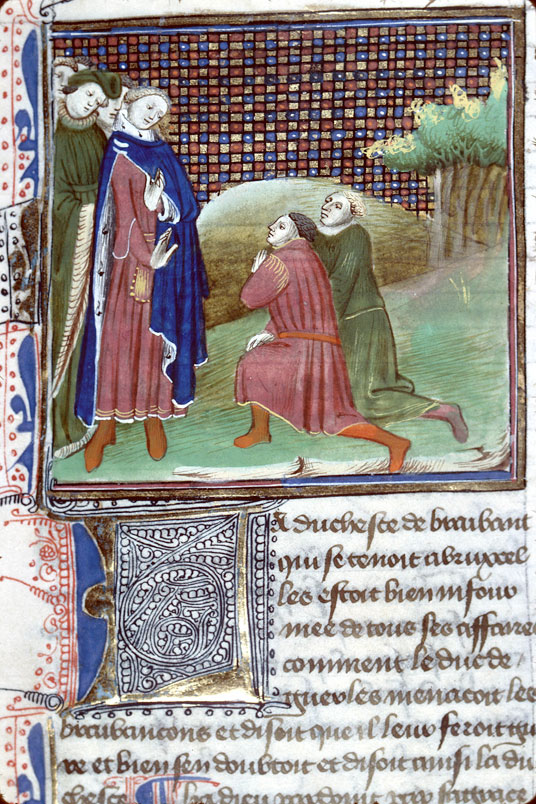 La ducheste de braibant
qui se tenoit a bruxcel
les estoit bien infour
mee de tous ses affaires
comment le duc de
gueoles menacoit les
braibancons et disoit que il leur feroit gu
re et bien sen doubtoit et disoit ainsi la du
cheste